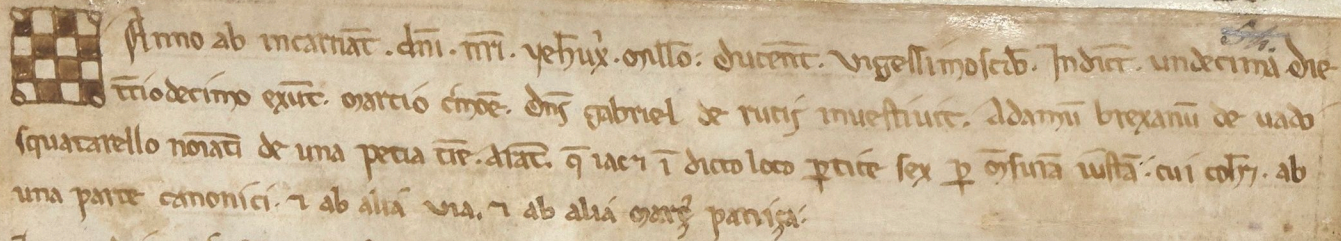 Anno ab incarnat̄. dn̄i. nr̄i. yeh̄u xp̄i. mill̄o: ducent̄. vigessimo scd̄o. Indict̄. undecima. die
t̄ciodecimo exeūt. marcio
dn̄s gabriel de rutis investivit. Adamū brexanū de vado
squatarello de una petia t̄re. arat̄. q̄ iacet ī dicto loco p̄tice sex p̄ m̄sura iusta: cui coh̄et. ab
una parte canonici. et ab alia via. et ab alia